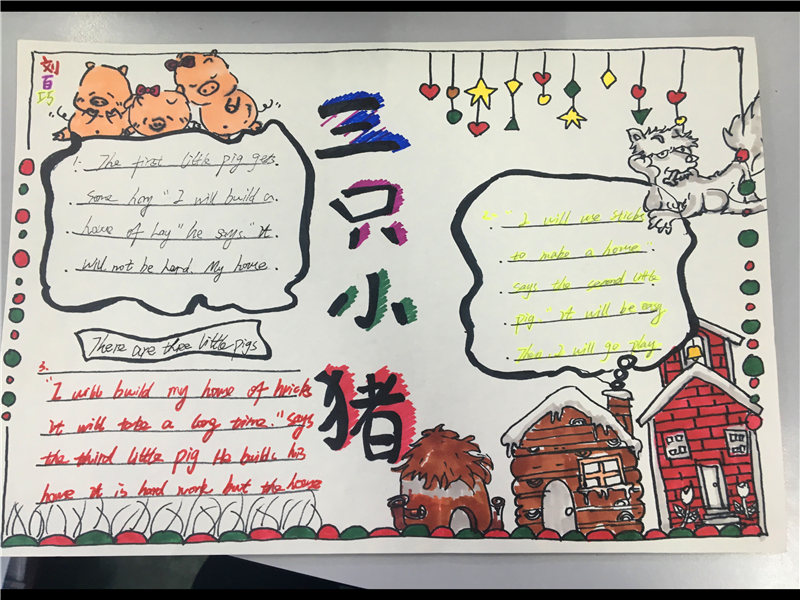 刘百巧
三只小猪
1. The first little pig gets
some hay "I will build a
house of hay" he says." It
will not be hard. My home
There are three little pigs
2. "I will use sticks
to make a home".
says the second little
pig." It will be easy
Then I will go play
3.
"I will build my house of bricks
it will take a long trime." says
the third little pig He build his
home it is hard work but the house